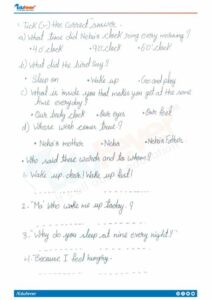 Edufever
• Tick (✓) the correct answer -
a) What time did Neha's clock rang every morning?
• 4 O' clock • 9 O' clock • 6 O' clock
b) What did the bird say?
• Sleep on • Wake up • Go and play
c) What is inside you that makes you get at the same
time everyday?
• Our body clock • Our eyes • Our feet
d) Where were comes from?
• Neha's mother • Neha • Neha's Father
• Who said these words and to whom?
1. Wake up dear! Wake up fast!
2. "Ma' Who woke me up today. ?
3. "Why do you sleep at nine every night?"
4. "Because I feel hungry.
/Edufever